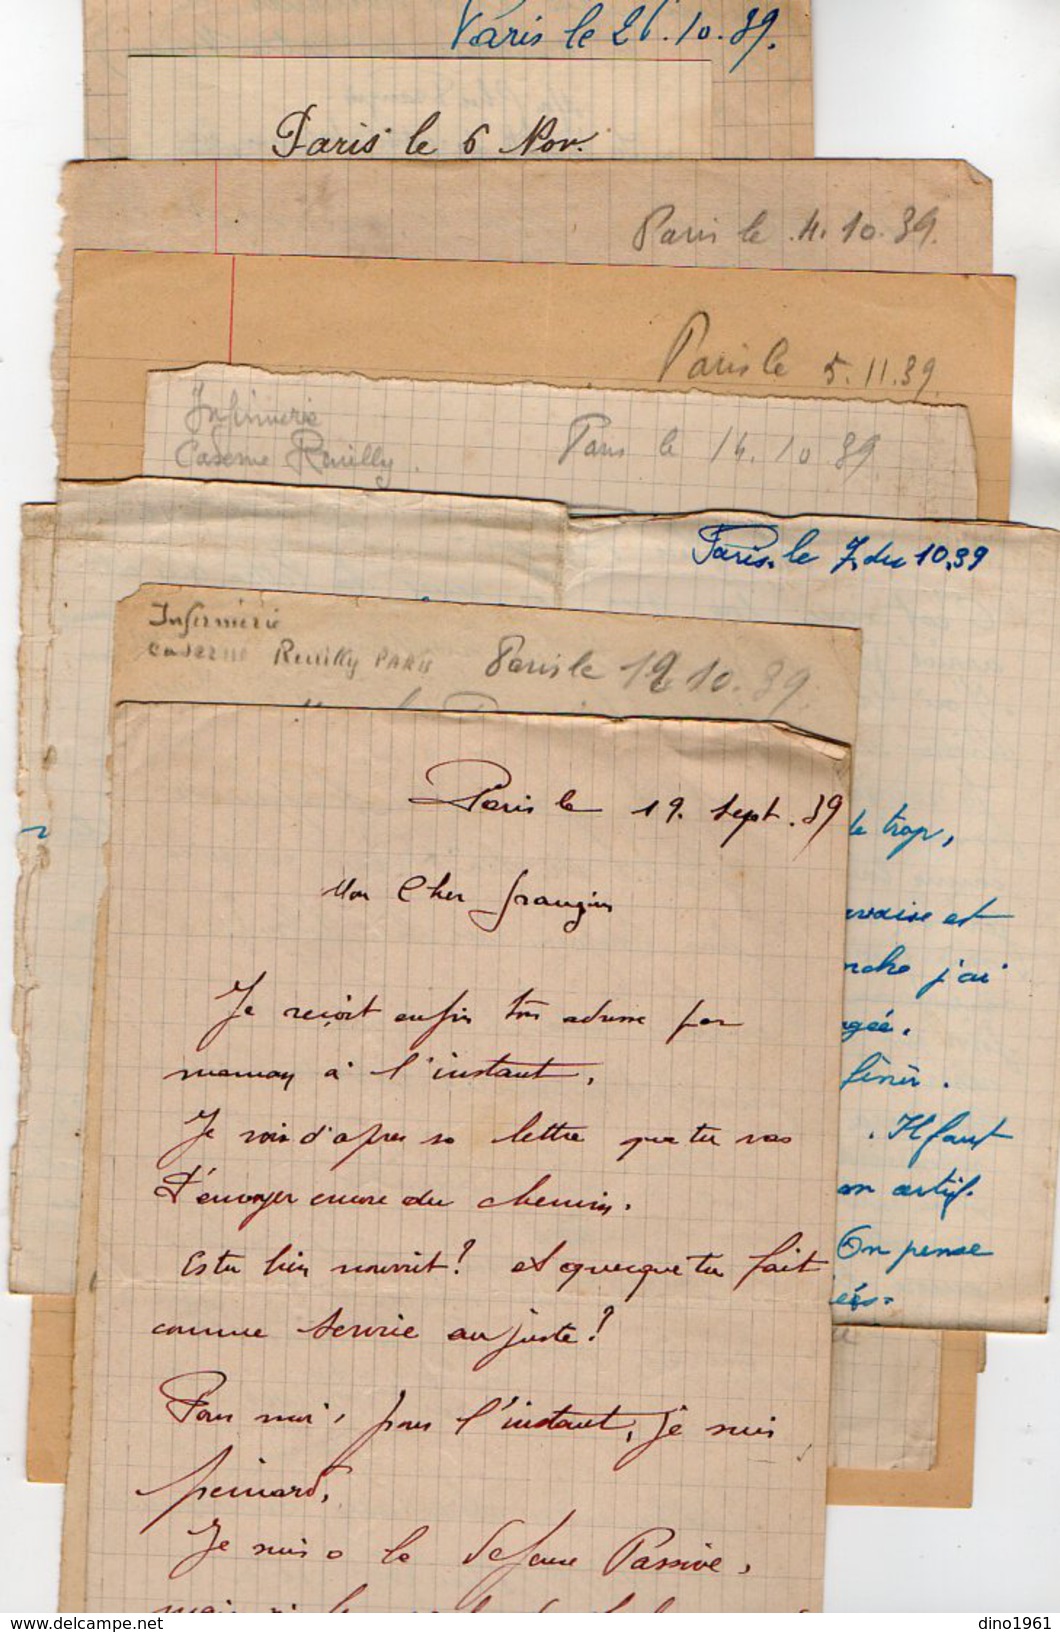 Paris le 26.10.39.
Paris le 6 Nov.
Paris le 4.10.39.
Paris le 5.11.39
Infirmerie
Caserne Reuilly.
Paris le 14.10 39
Paris.le 7.du 10.39
Infirmerie
caserne Reuilly PARIS
Paris le 12 10.39.
Paris le 19. Sept. 39
Mon Cher frangin
Je reçoit enfin ton adresse par
maman à l'instant.
Je vois d'après sa lettre que tu vas
t'envoyer encore du chemin.
Es tu bien nourrit? et quesque tu fait
comme service au juste?
Pour moi, pour l'instant, je suis
peinard,
Je suis a la défense Passive,
de trop,
et
j'ai
finir.
. Il faut
artif.
On pense
dino1961